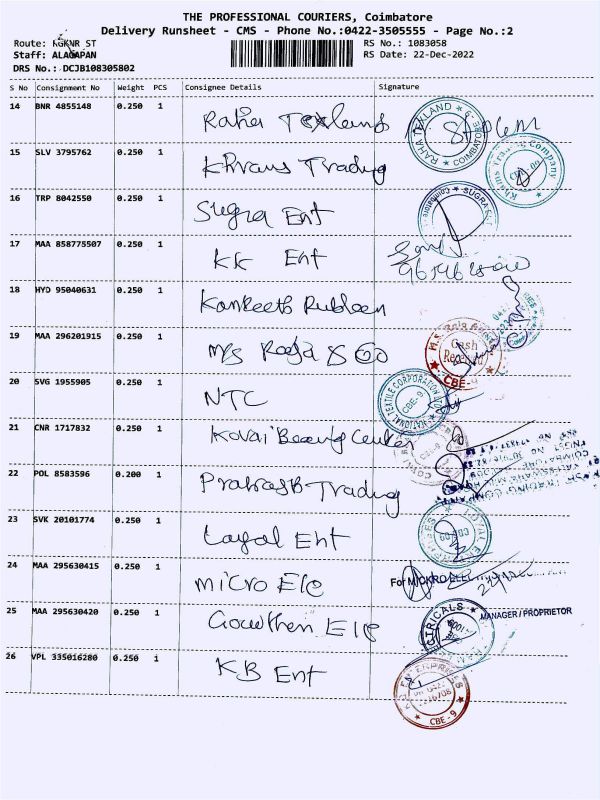 THE PROFESSIONAL COURIERS, Coimbatore
Delivery Runsheet - CMS - Phone No.:0422-3505555 - Page No.:2
Route: KGKNR ST
RS No.: 1083058
Staff: ALAGAPAN
RS Date: 22-Dec-2022
DRS No.: DCJB108305802
S No Consignment No Weight PCS Consignee Details Signature
14 BNR 4855148 0.250 1 Raha Texland
RAHA TEXLAND COIMBATORE
15 SLV 3795762 0.250 1 Khvans Trading
Khams Trading Company
16 TRP 8042550 0.250 1 Sugra Ent
SUGRA Coimbatore
17 MAA 858775507 0.250 1 KK Ent
18 HYD 95040631 0.250 1
19 MAA 296201915 0.250 1 M/s Raja & Co
Cash Received CBE-9
20 SVG 1955905 0.250 1 NTC
NATIONAL TEXTILE CORPORATION CBE-9
21 CNR 1717832 0.250 1 Kovai Bearing Center
22 POL 8583596 0.200 1 Prakash Trading
23 SVK 20101774 0.250 1 Layal Ent
24 MAA 295630415 0.250 1 Micro Ele
For MICKRO ELEC
MANAGER/PROPRIETOR
25 MAA 295630420 0.250 1 Gowtham Ele
26 VPL 335016280 0.250 1 KB Ent
ENTERPRISES CBE-9